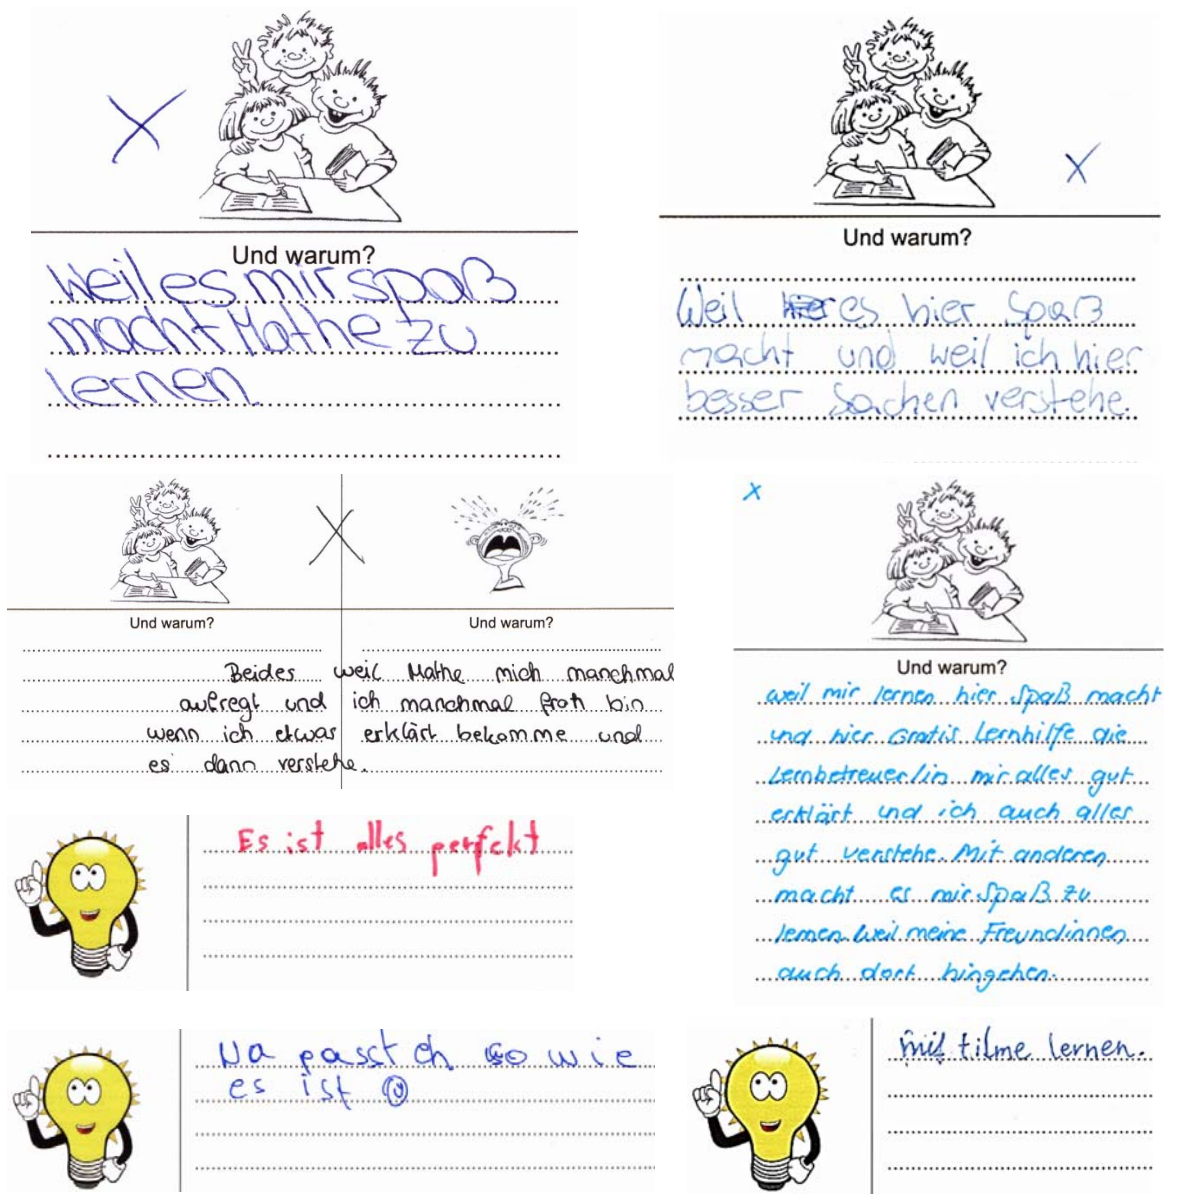 Und warum?
Weil es mir spaß
macht Mathe zu
lernen.
Und warum?
Weil es hier Spaß
macht und weil ich hier
besser Sachen verstehe.
Und warum?
Und warum?
Beides weil Mathe mich manchmal
aufregt und ich manchmal froh bin
wenn ich etwas erklärt bekomme und
es dann verstehe.
Und warum?
weil mir lernen hier Spaß macht
und hier Gratis Lernhilfe die
Lernbetreuer/in mir alles gut
erklärt und ich auch alles
gut verstehe. Mit anderen
macht es mir Spaß zu
lernen. Weil meine Freundinnen
auch dort hingehen.
Es ist alles perfekt
Na passt eh so wie
es ist
lernen.